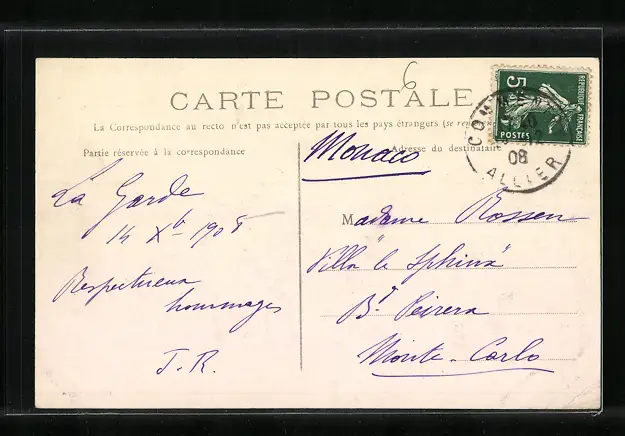 6
CARTE POSTALE
La Correspondance au recto n'est pas acceptée par tous les pays étrangers (se
Partie réservée à la correspondance
Adresse du destinataire
Monaco
La Garde
14 Xb 1908
Respectueux
hommages
J. R.
Madame Rossen
Villa "le Sphinx"
Bd Peirera
Monte-Carlo
5
POSTES
REPUBLIQUE FRANÇAISE
08
ALLIER